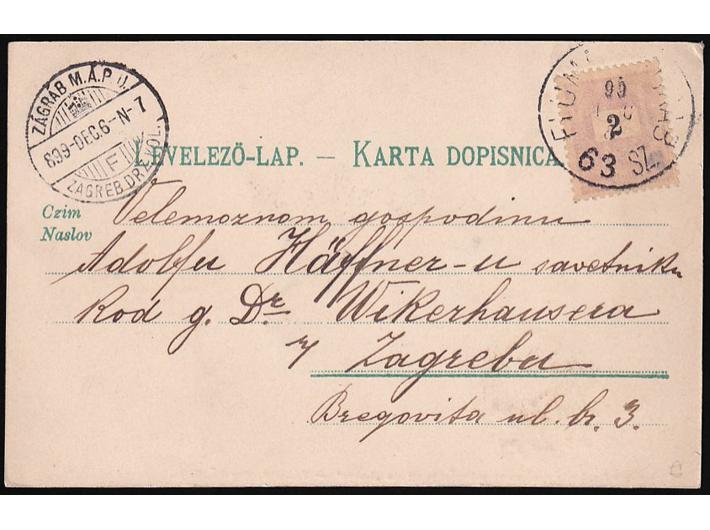 ZÁGRÁB M.Á.P.U.
899-DEC.6-N-7
F
ZAGREB DRŽ.KOL.
99
2
63 SZ.
LEVELEZŐ-LAP. — KARTA DOPISNICA
Czim
Naslov
Velemožnom gospodinu
Adolfu Häffner-u savetniku
kod g. Dr. Wikerhausera
Zagrebu
Bregovita ul. br. 3.